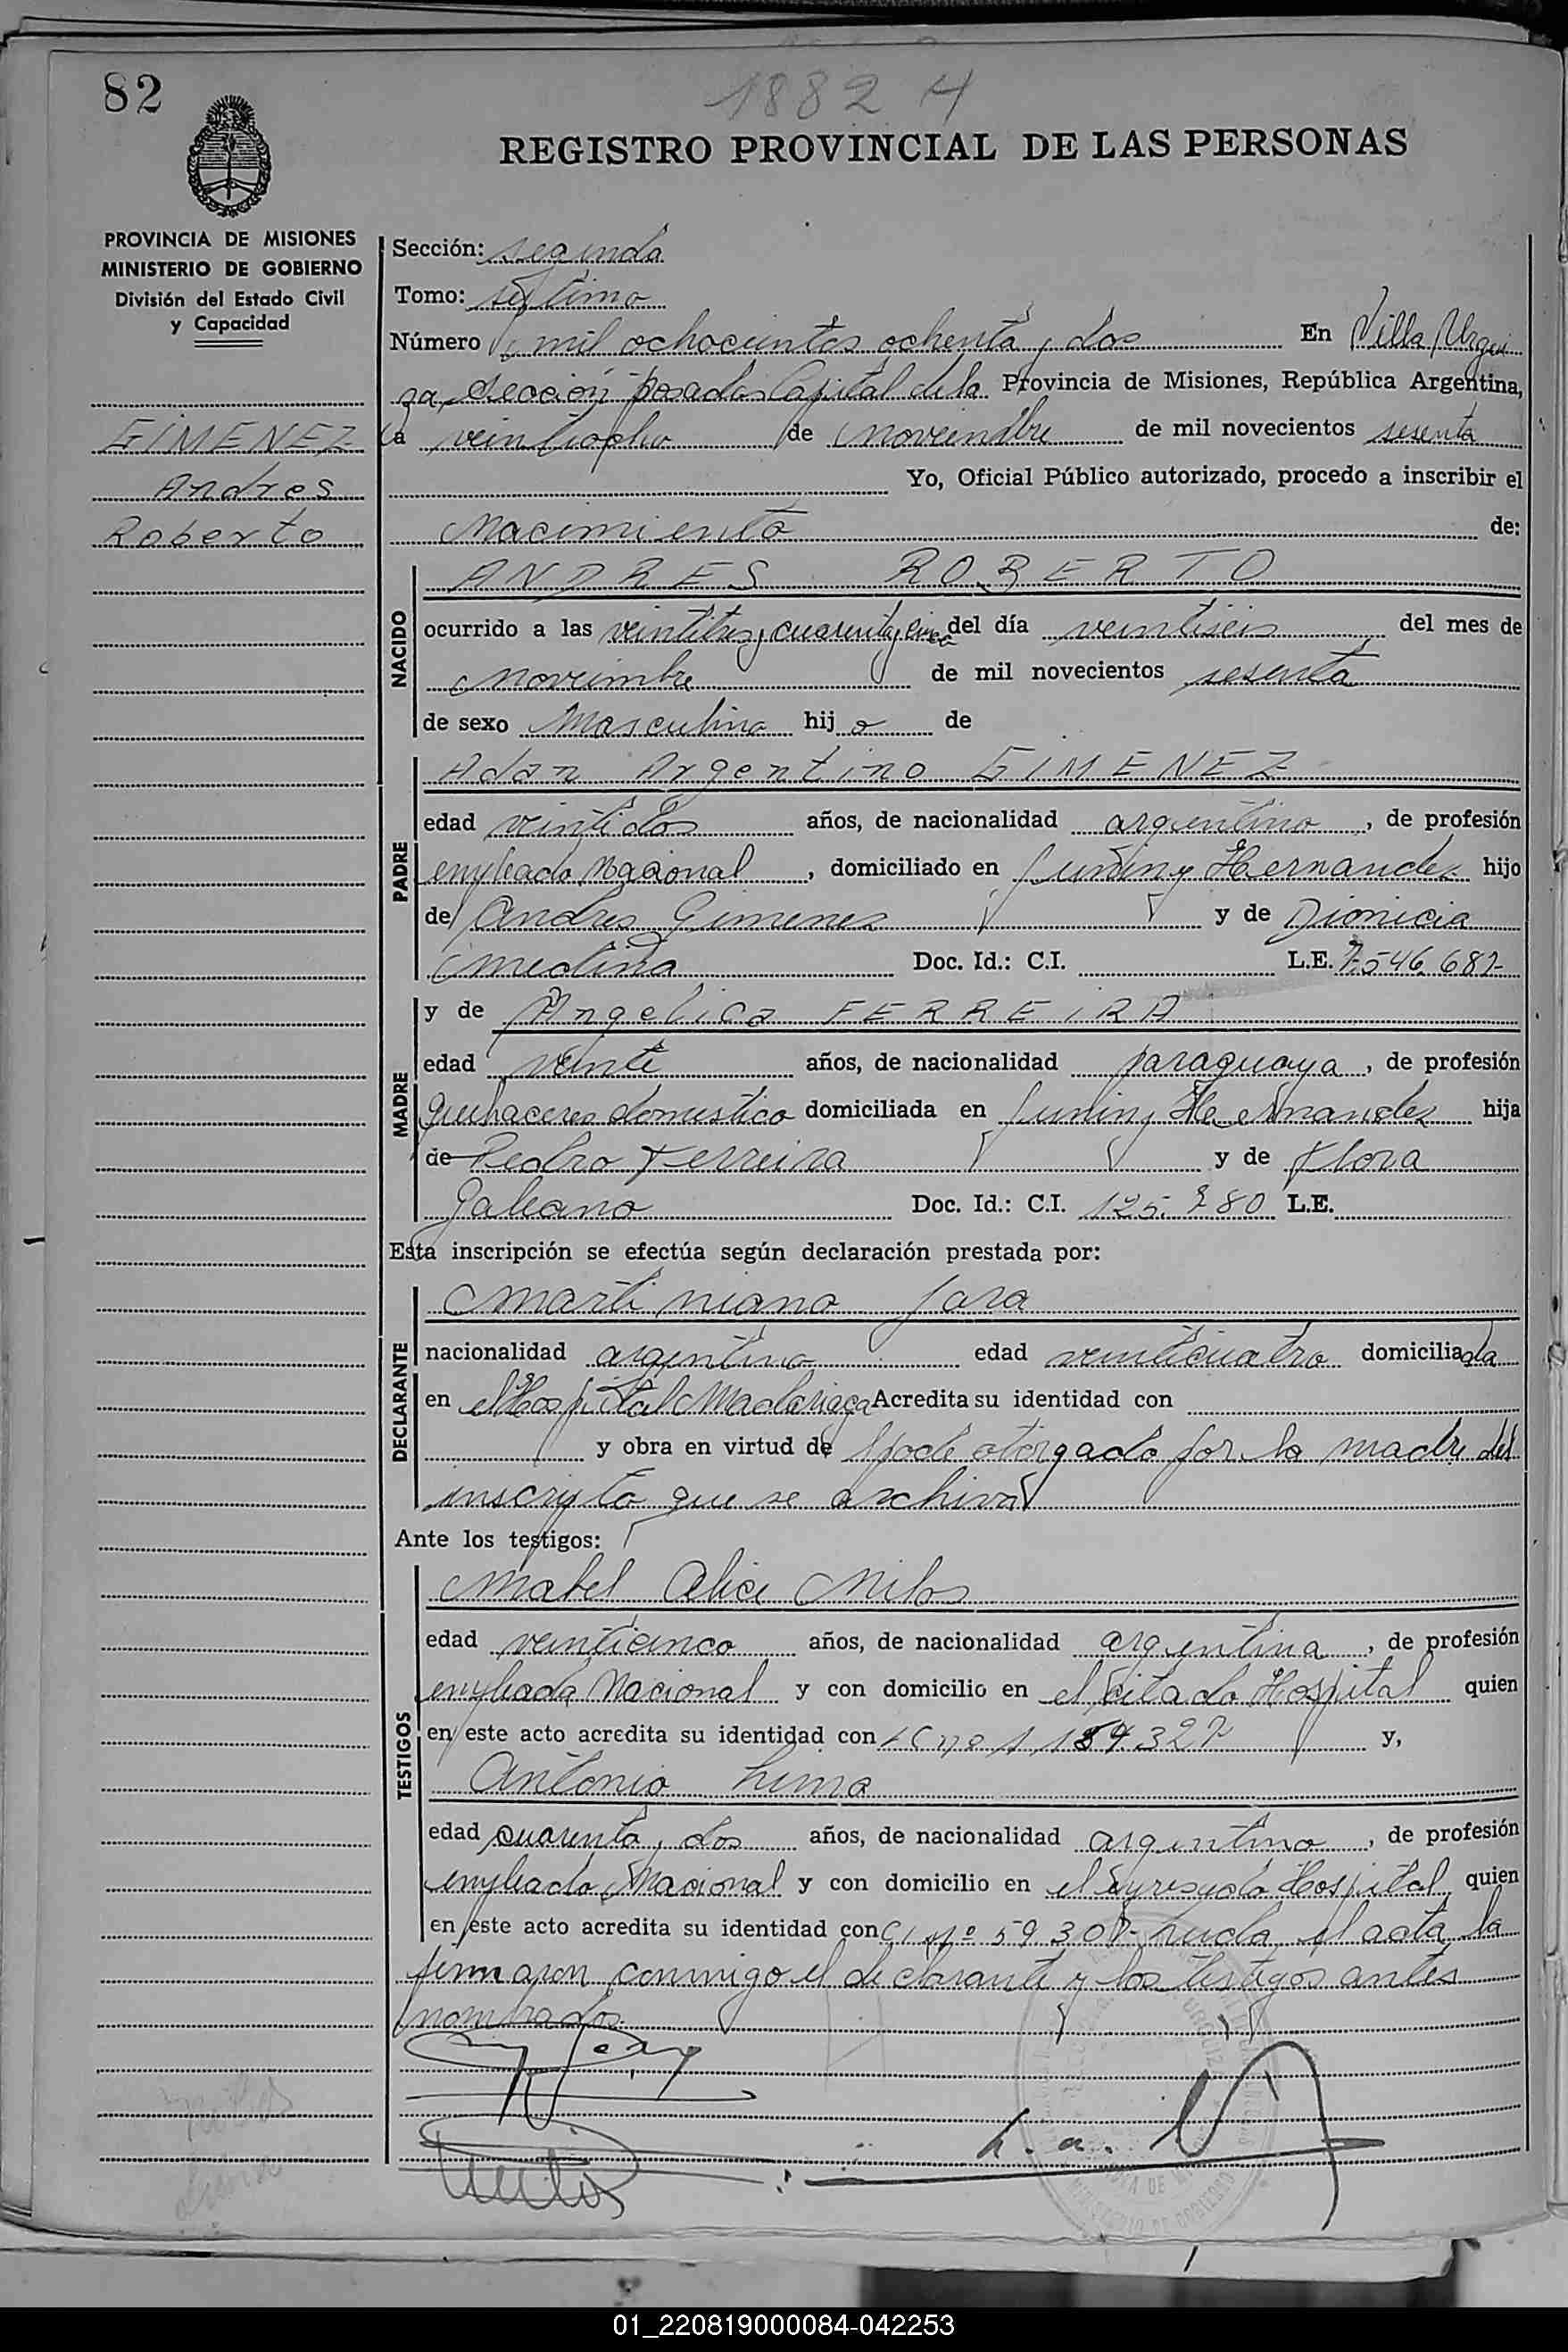 82
1882 H
REGISTRO PROVINCIAL DE LAS PERSONAS
PROVINCIA DE MISIONES
MINISTERIO DE GOBIERNO
División del Estado Civil
y Capacidad
GIMENEZ
Andres
Roberto
Sección: segunda
Tomo: septimo
Número mil ochocientos ochenta y dos En Villa Urqui
za, Sección posadas Capital de la Provincia de Misiones, República Argentina,
a veintiocho de noviembre de mil novecientos sesenta
Yo, Oficial Público autorizado, procedo a inscribir el
Nacimiento de:
NACIDO
ANDRES ROBERTO
ocurrido a las veintitres y cuarenta y cinco del día veintiseis del mes de
noviembre de mil novecientos sesenta
de sexo Masculino hijo de
PADRE
Adan Argentino GIMENEZ
edad veintidos años, de nacionalidad argentino, de profesión
empleado Nacional, domiciliado en Junin y Hernandez hijo
de Andres Gimenez y de Dionicia
Medina Doc. Id.: C.I. L.E. 7.546.682
MADRE
y de Angelica FERREIRA
edad veinte años, de nacionalidad paraguaya, de profesión
quehaceres domestico domiciliada en Junin y Hernandez hija
de Pedro Ferreira y de Flora
Galeano Doc. Id.: C.I. 125.280 L.E.
Esta inscripción se efectúa según declaración prestada por:
DECLARANTE
Martiniano Jara
nacionalidad argentino edad veinticuatro domiciliada
en el Hospital Madariaga Acredita su identidad con
y obra en virtud de otorgado por la madre del
inscripto que se archiva
Ante los testigos:
TESTIGOS
Mabel Alice Milos
edad veinticinco años, de nacionalidad argentina, de profesión
empleada Nacional y con domicilio en el citado Hospital quien
en este acto acredita su identidad con LC nº 1.154.327 y,
Antonio Lima
edad cuarenta y dos años, de nacionalidad argentino, de profesión
empleado Nacional y con domicilio en el expresado Hospital quien
en este acto acredita su identidad con CI Nº 59.307- Leida el acta la
firmaron conmigo el declarante y los testigos antes
nombrados.
01_220819000084-042253